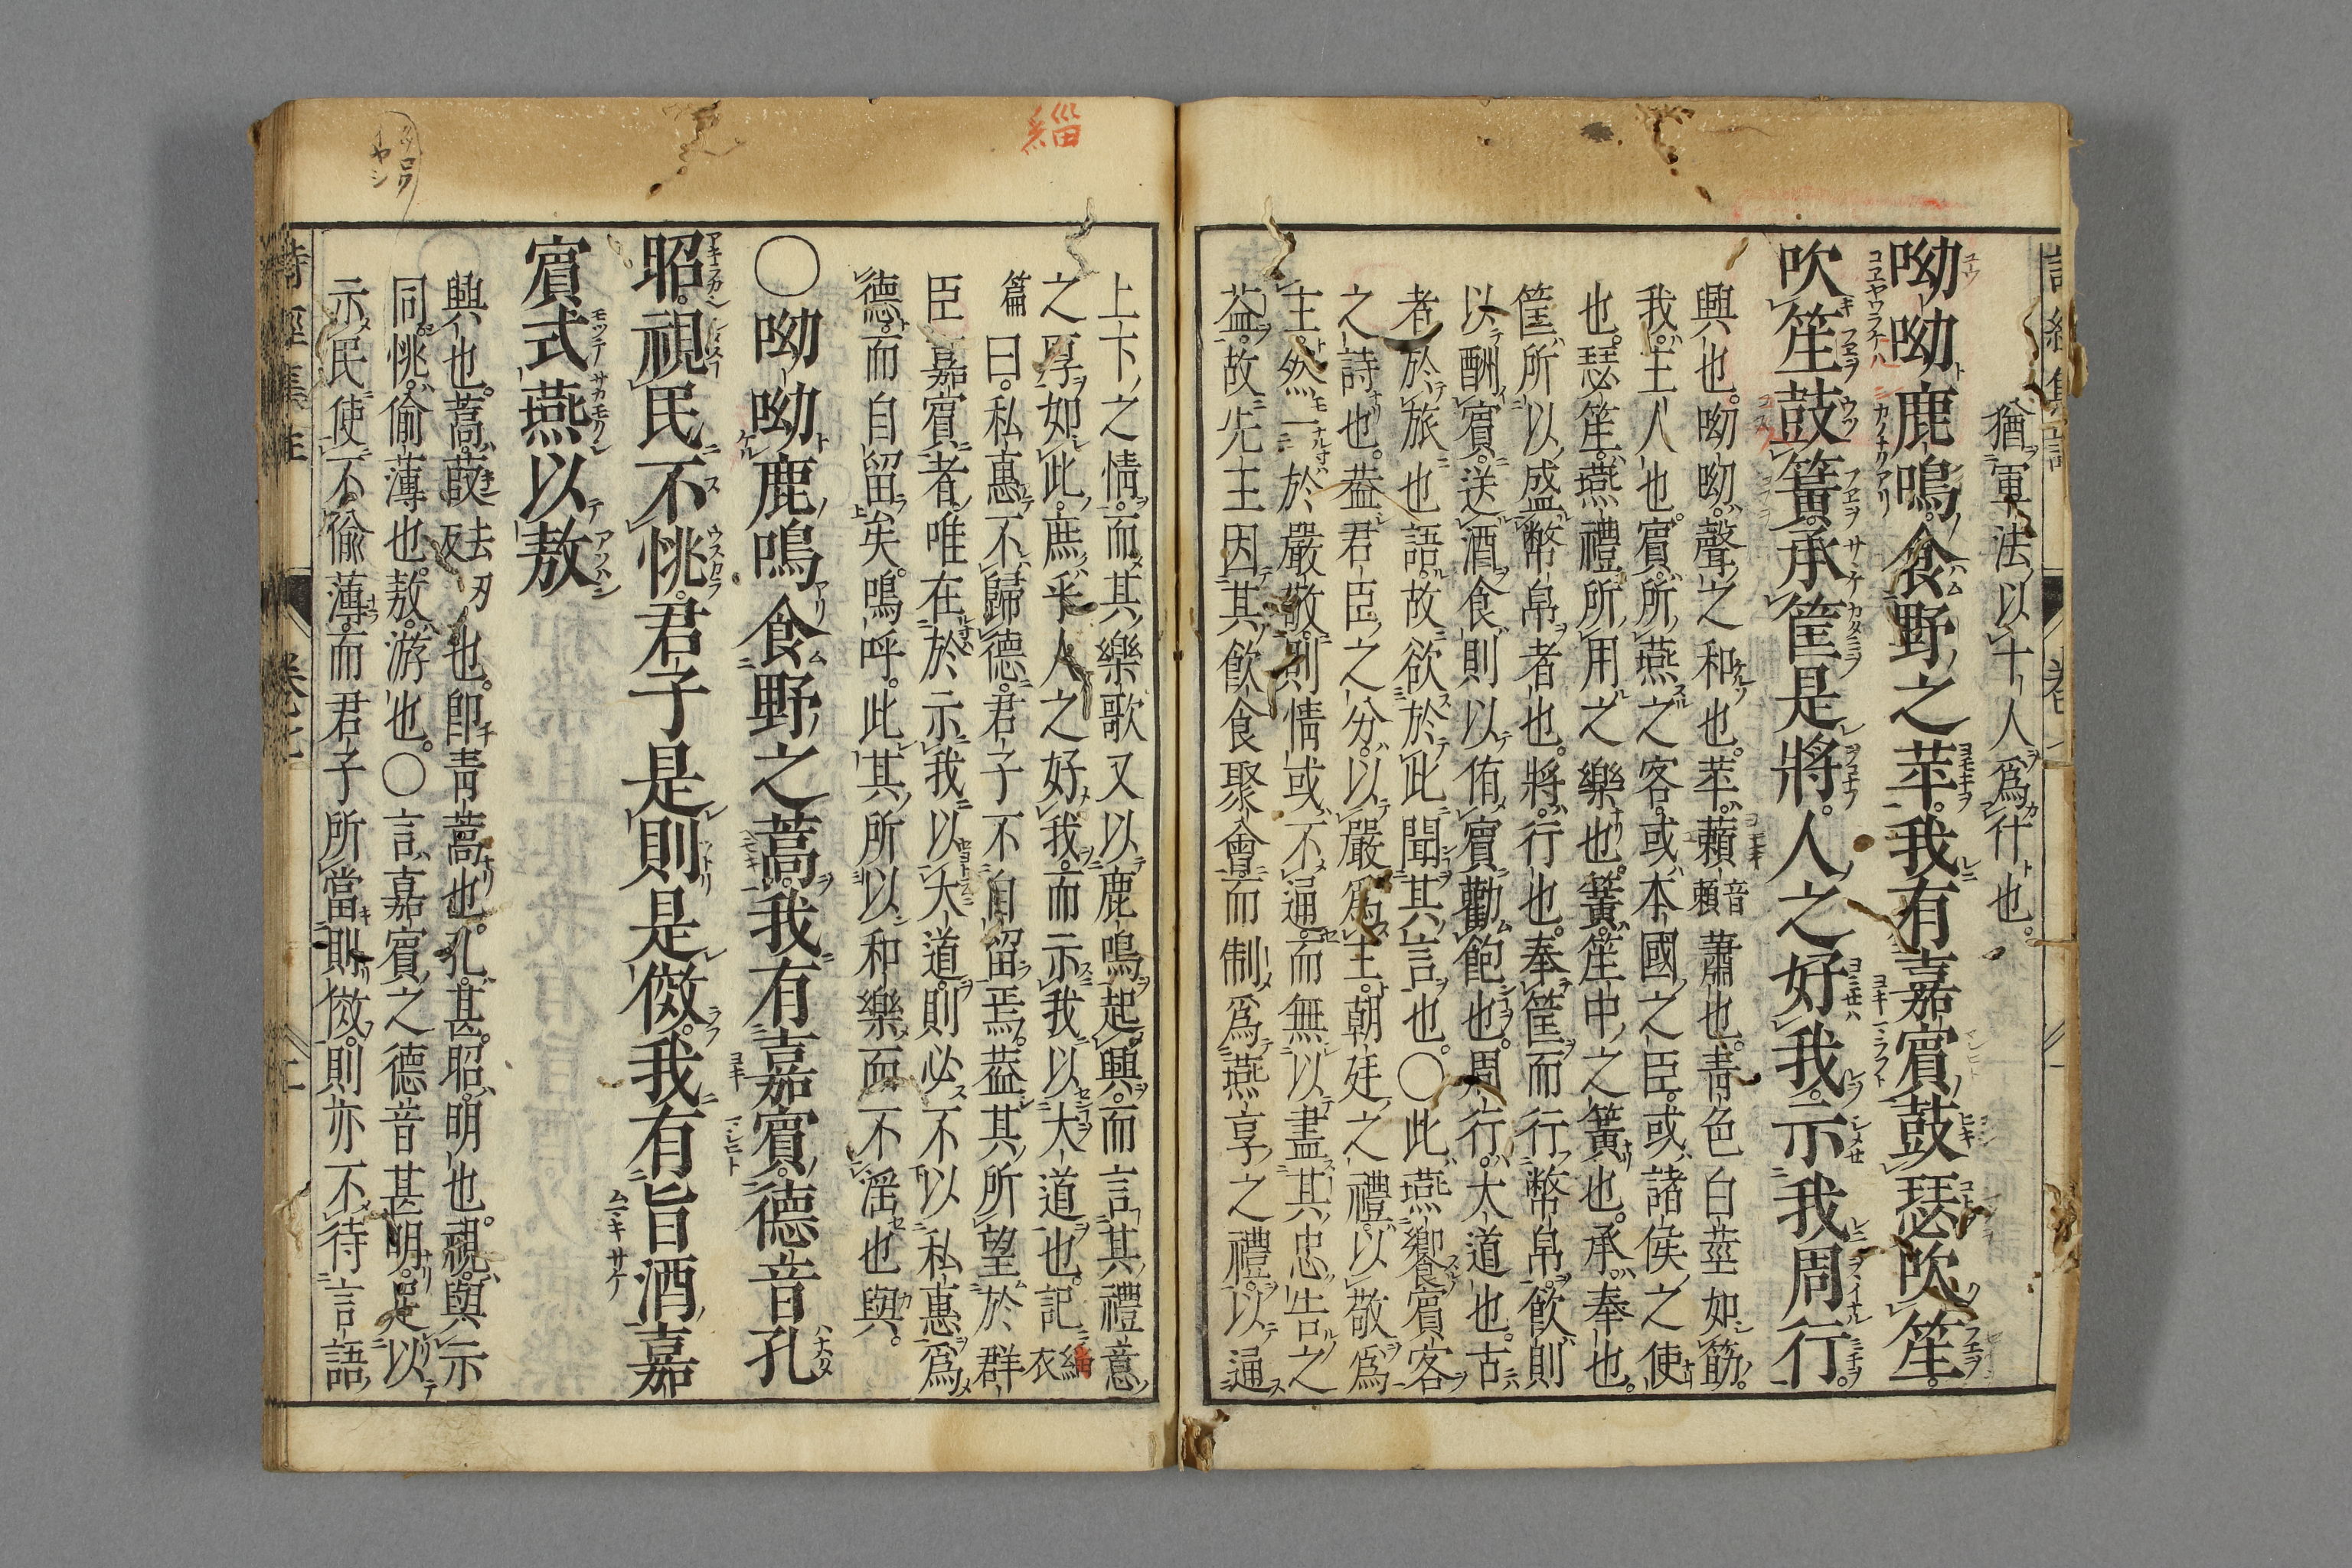 猶軍法以十人爲什也
呦呦鹿鳴食野之苹我有嘉賔鼓瑟吹笙
吹笙鼓簧承筐是將人之好我示我周行
興也呦呦聲之和也苹藾音賴蕭也青色白莖如筯
我主人也賔所燕之客或本國之臣或諸侯之使
也瑟笙燕禮所用之樂也簧笙中之簧也承奉也
筐所以盛幣帛者也將行也奉筐而行幣帛飮則
以酬賔送酒食則以侑賔勸飽也周行大道也古
者於旅也語故欲於此聞其言也○此燕饗賔客
之詩也葢君臣之分以嚴爲主朝廷之禮以敬爲
主然一於嚴敬則情或不通而無以盡其忠告之
益故先王因其飮食聚會而制爲燕享之禮以通
上下之情而其樂歌又以鹿鳴起興而言其禮意
之厚如此庶乎人之好我而示我以大道也記緇衣
篇曰私惠不歸德君子不自留焉葢其所望於群
臣嘉賔者唯在於示我以大道則必不以私惠爲
德而自留矣嗚呼此其所以和樂而不淫也與
○呦呦鹿鳴食野之蒿我有嘉賔德音孔
昭視民不恌君子是則是傚我有旨酒嘉
賔式燕以敖
興也蒿菣去刃反也卽青蒿也孔甚昭明也視與示
同恌偷薄也敖游也○言嘉賔之德音甚明足以
示民使不偷薄而君子所當則傚則亦不待言語
詩經集註 卷之 二
緇